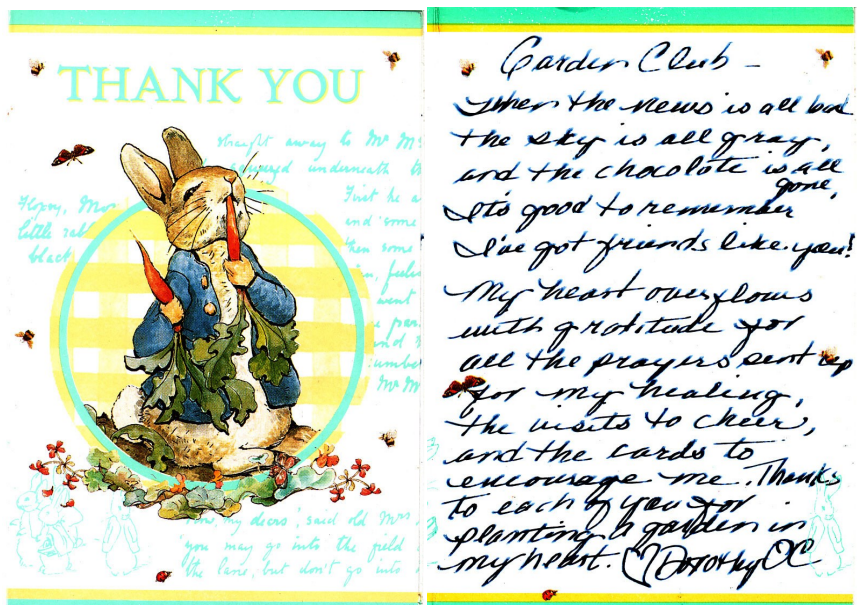 THANK YOU
straight away to Mr M
underneath
First he a
Flopsy, Mop
and some
little rabb
then some
black
feelin
went
par
and
Mr M
Now, my dears', said old Mrs.
you may go into the field
the lane, but don't go into
Garden Club -
When the news is all bad
the sky is all gray,
and the chocolate is all
gone,
It's good to remember
I've got friends like you!
My heart overflows
with gratitude for
all the prayers sent up
for my healing,
the visits to cheer,
and the cards to
encourage me. Thanks
to each of you for
planting a garden in
my heart. ♡ Dorothy OC